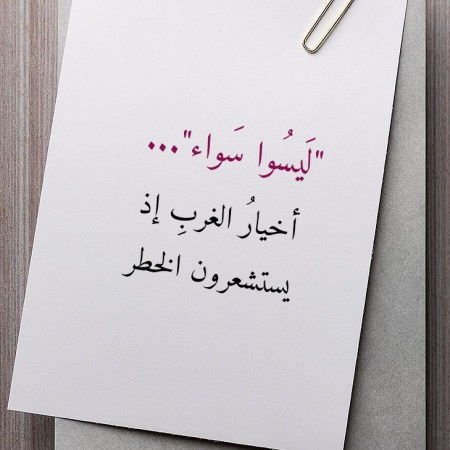 "لَيسُوا سَواء"...
أخيارُ الغربِ إذ
يستشعرون الخطر